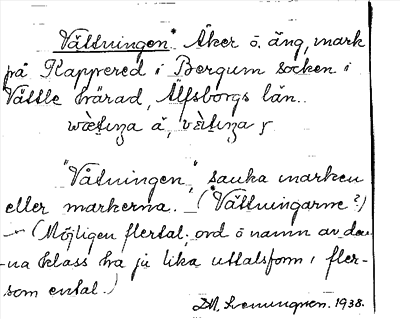 "Vättningen" Åker o. äng, mark
på Kappered i Bergum socken i
Vättle härad, Älfsborgs län..
"Vätningen," sanka marken
eller markerna. ("Vättningarne"?)
- (Möjligen flertal; ord o namn av den-
na klass ha ju lika uttalsform i fler-
som ental.)
1938.